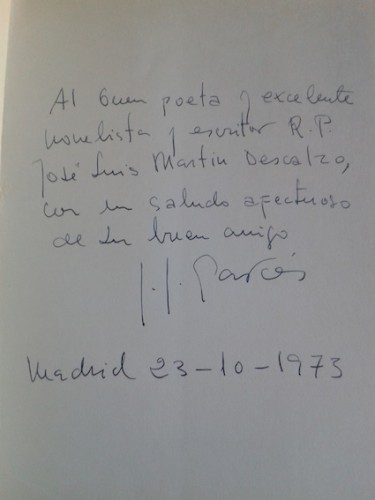 Al buen poeta y excelente
novelista y escritor R.P.
José Luis Martin Descalzo,
con un saludo afectuoso
de su buen amigo
J. J. Garcés
Madrid 23-10-1973